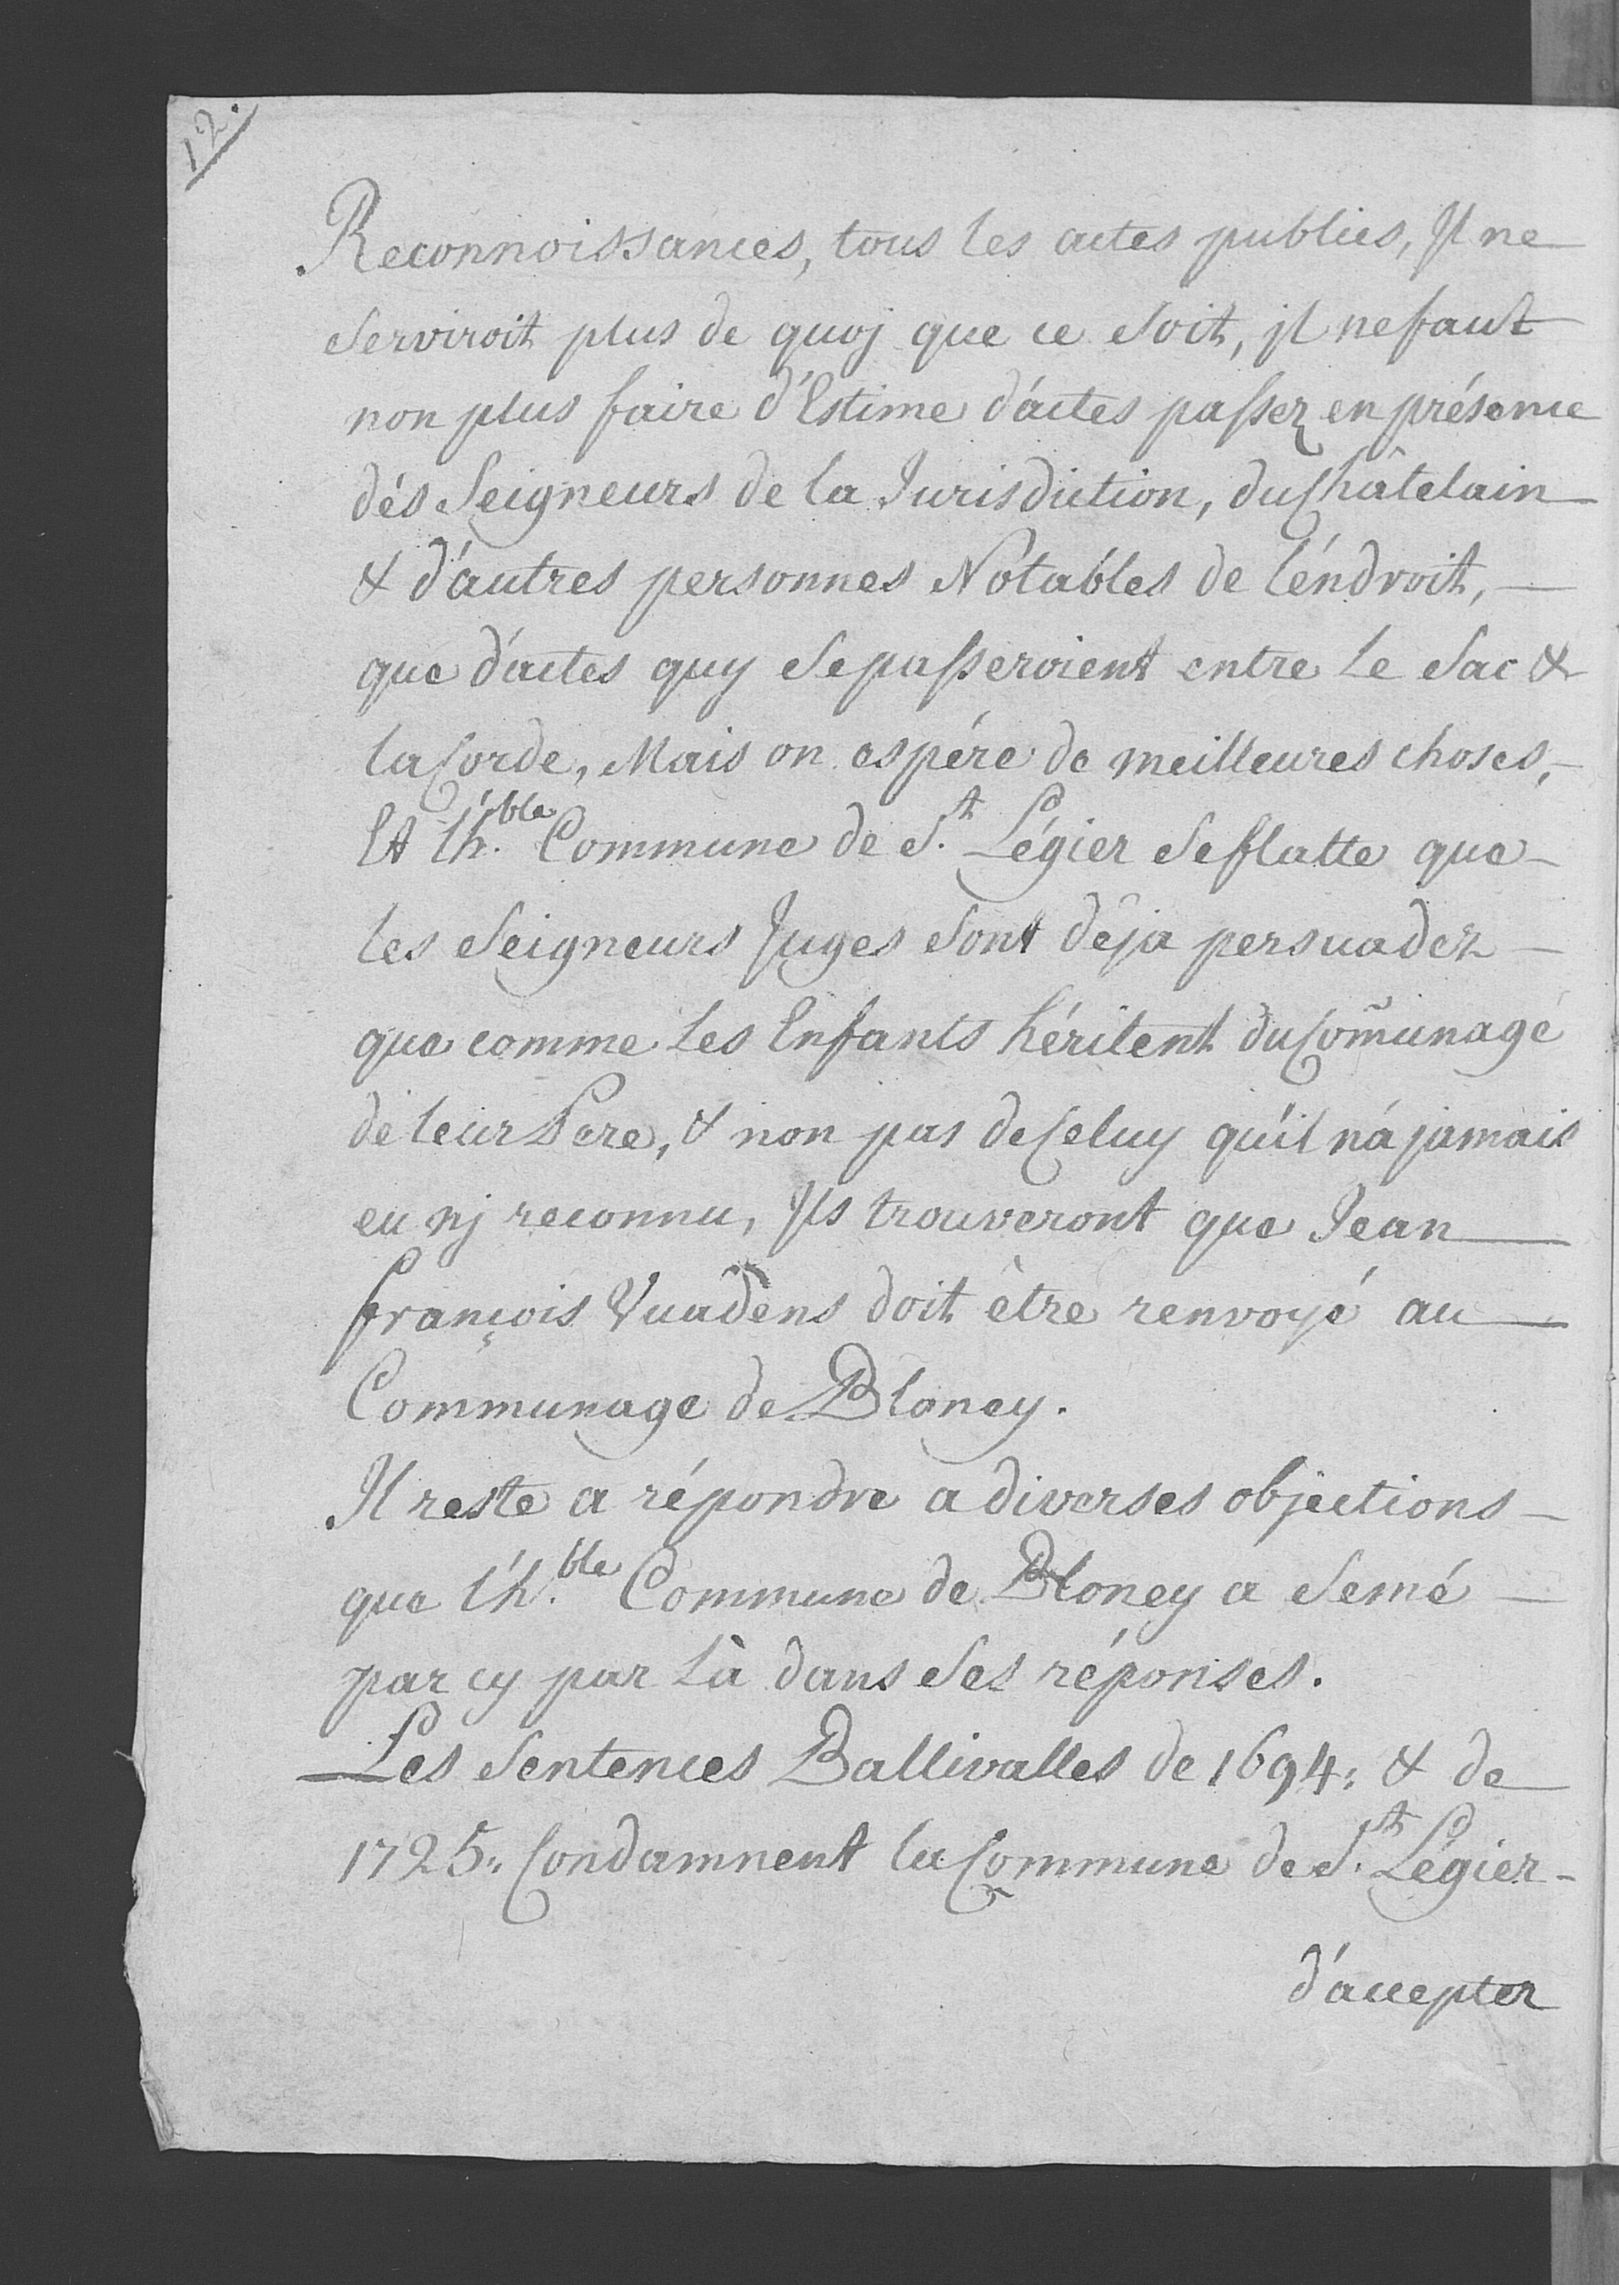 12.
Reconnoissances, tous les actes publics, Il ne
serviroit plus de quoj que ce soit, il ne faut
non plus faire d'Estime d'actes passez en présence
dés Seigneurs de la Jurisdiction, du Châtelain
& d'autres personnes Notables de l'éndroit,
que d'actes quy se passeroient entre le Sac &
la Corde, Mais on espére de meilleures choses,
Et l'h.ble Commune de S.t Légier se flatte que
les Seigneurs Juges sont déja persuadez
que comme les Enfants héritent du Com̃unage
de leur Pere, & non pas de Celuy qu'il n'a jamais
eu nj reconnu, Ils trouveront que Jean
françois Vuadens doit être renvoyé au
Communage de Bloney.
Il reste a répondre a diverses objections
que l'h.ble Commune de Bloney a semé
par cy par là dans ses réponses.
Les Sentences Ballivalles de 1694: & de
1725: Condamnent la Commune de S.t Légier
d'accepter